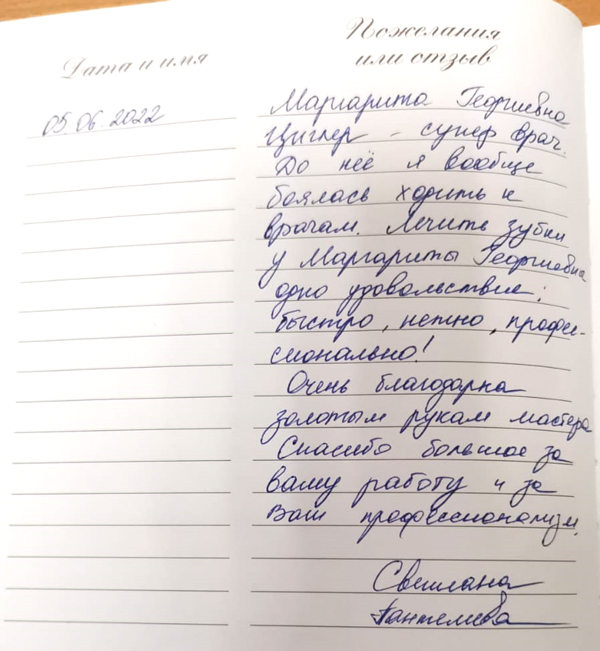 Дата и имя
Пожелания
или отзыв
05.06.2022
Маргарита Георгиевна
Циглер - супер врач.
До неё я вообще
боялась ходить к
врачам. Лечить зубки
у Маргариты Георгиевны
одно удовольствие:
быстро, нежно, профес-
сионально!
Очень благодарна
золотым рукам мастера
Спасибо большое за
вашу работу и за
Ваш профессионализм.
Светлана